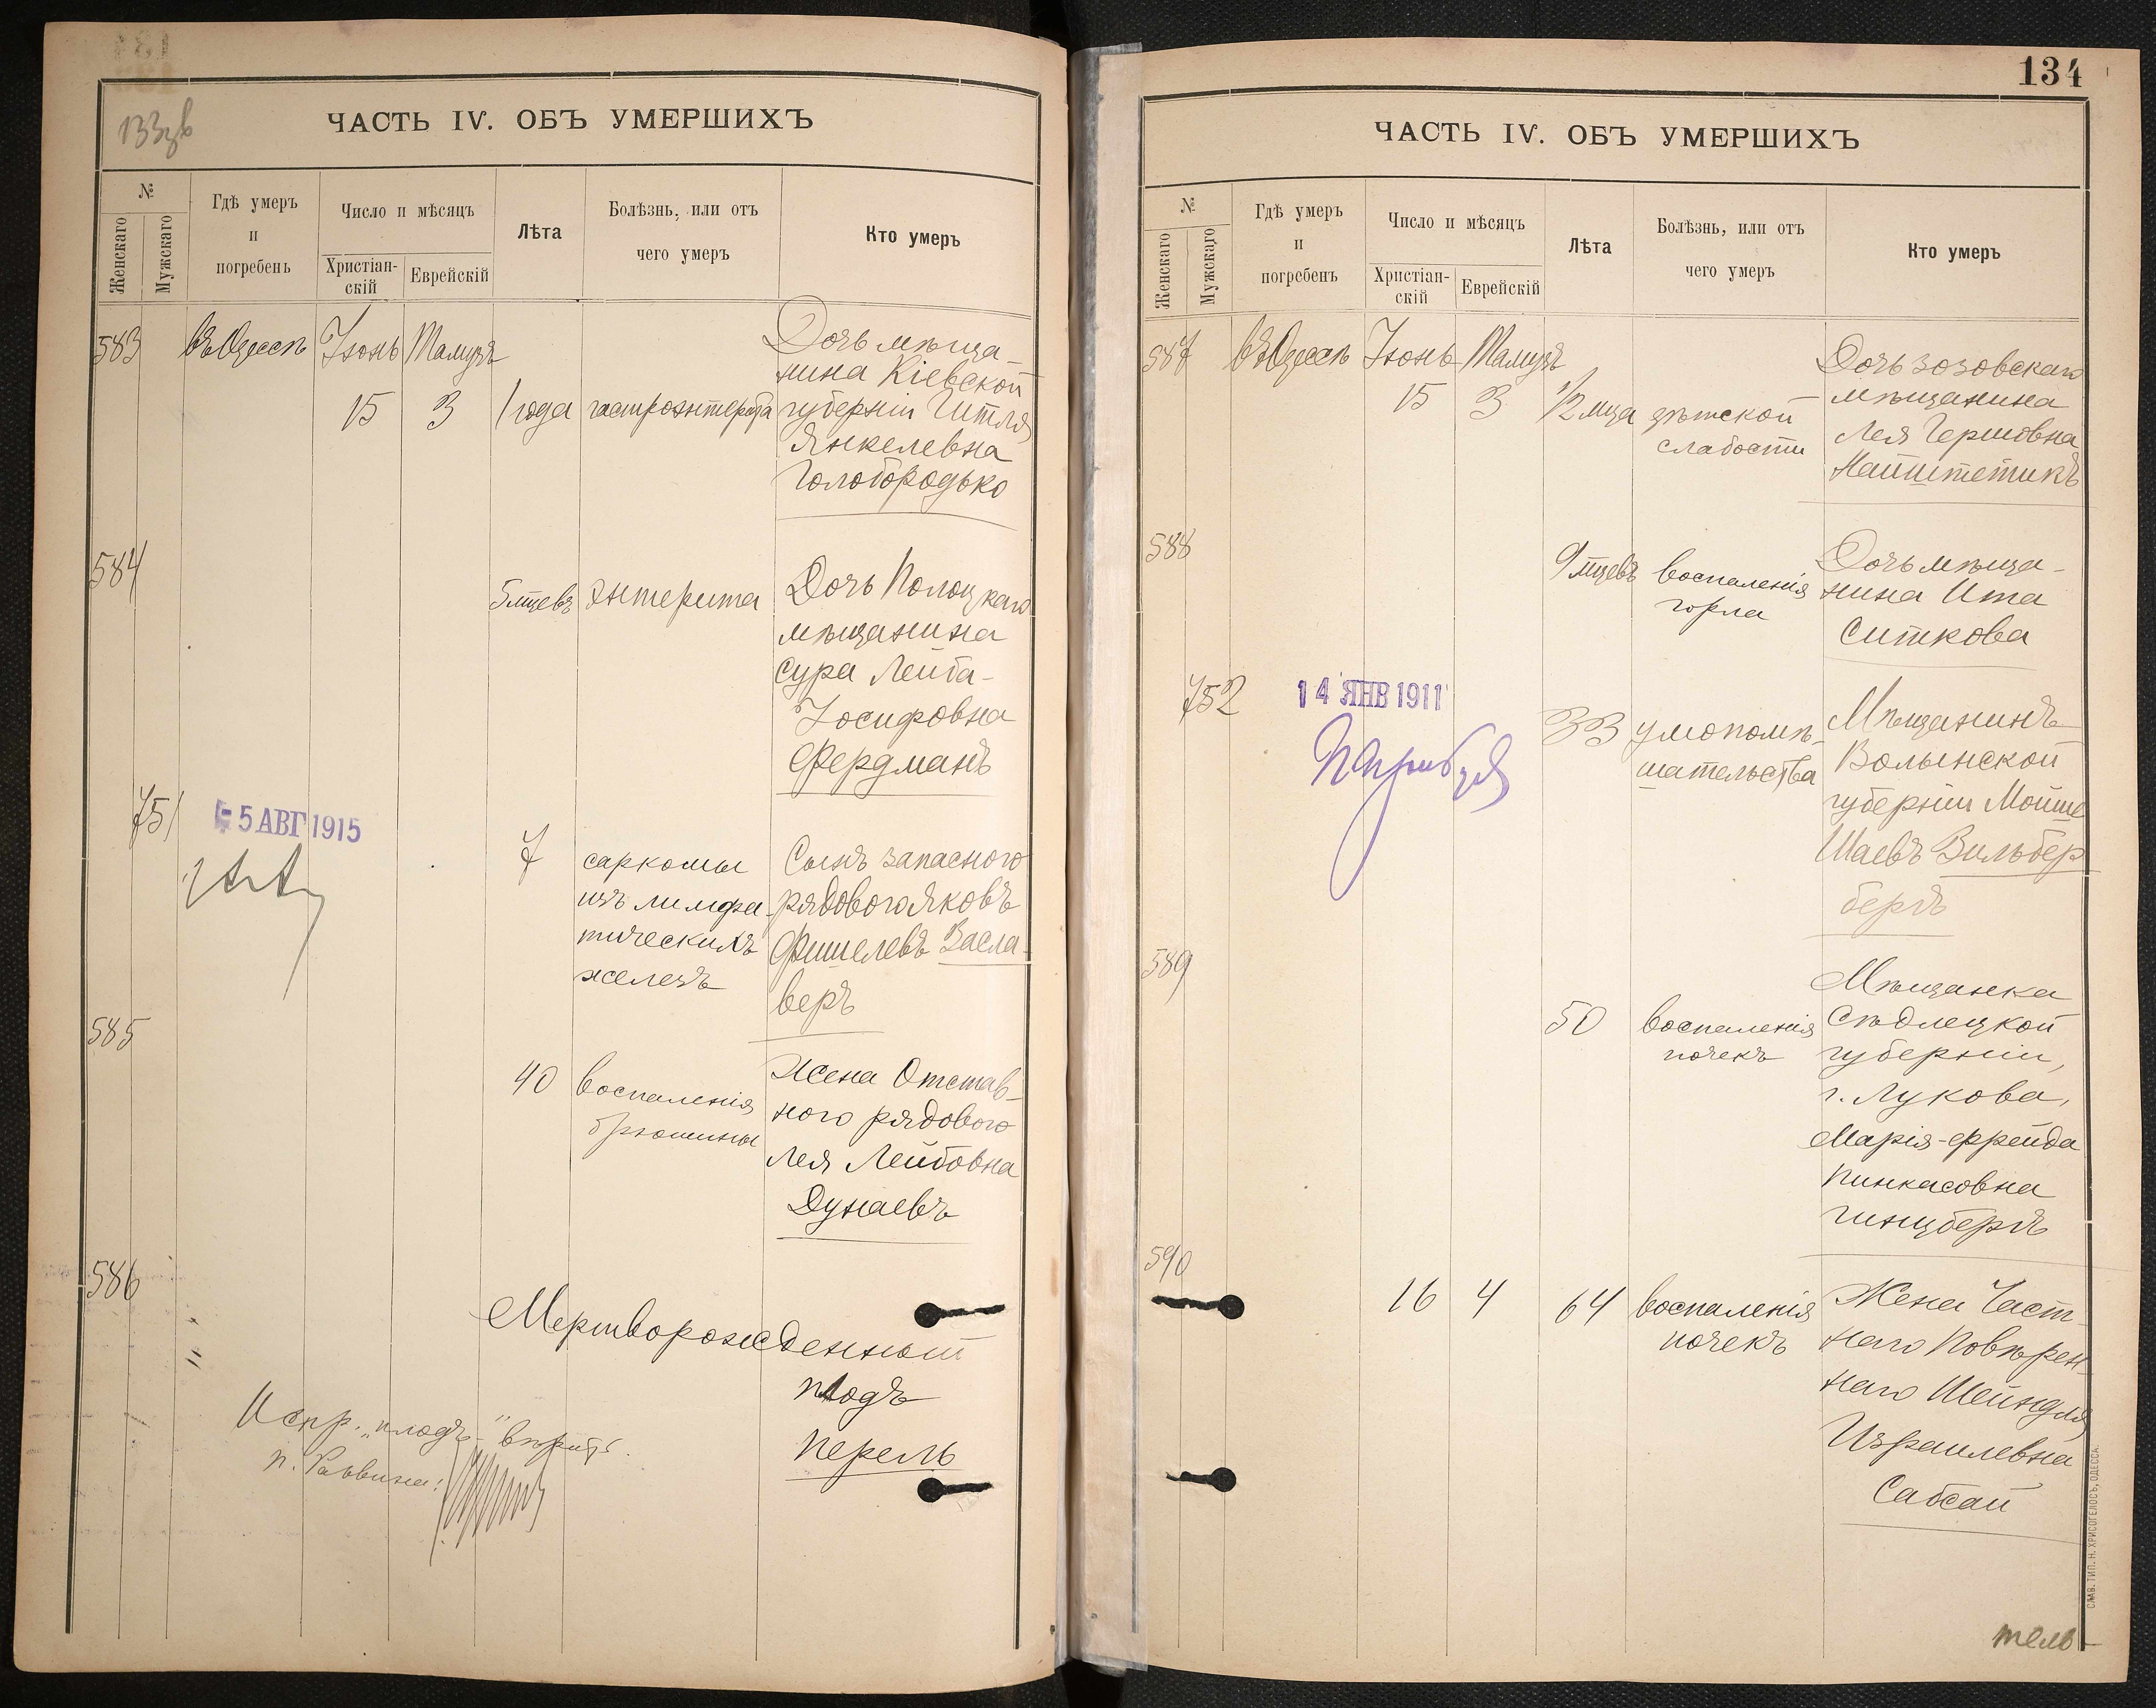 133об
ЧАСТЬ IV. ОБЪ УМЕРШИХЪ
№
Женскаго
Мужскаго
Гдѣ умеръ
и
погребенъ
Число и мѣсяцъ
Христіан-
скій
Еврейскій
Лѣта
Болѣзнь, или отъ
чего умеръ
Кто умеръ
583 въ Одессѣ Іюнь Тамузъ
15 3 1 года гастроэнтерита
Дочь мѣща-
нина Кіевской
губерніи Гитля
Янкелевна
Голобородько
584
5 мцевъ энтерита
Дочь Полоцкаго
мѣщанина
Сура Лейба-
Іосифовна
Фердманъ
751
5 АВГ 1915
7
саркомы
изъ лимфа-
тическихъ
железъ
Сынъ запасного
рядового Яковъ
Фишелевъ Засла-
веръ
585
40
воспаленія
брюшины
Жена Отстав-
ного рядового
Лея Лейбовна
Дунаевъ
586
Мертворожденный
плодъ
Перель
Испр. „плодъ“ вѣрить.
п. Раввина:
134
ЧАСТЬ IV. ОБЪ УМЕРШИХЪ
№
Женскаго
Мужскаго
Гдѣ умеръ
и
погребенъ
Число и мѣсяцъ
Христіан-
скій
Еврейскій
Лѣта
Болѣзнь, или отъ
чего умеръ
Кто умеръ
587 въ Одессѣ Іюнь Тамузъ
15 3 1/2 мца
дѣтской
слабости
Дочь
мѣщанина
Лея Гершовна
Найштетикъ
588
9 мцевъ
воспаленія
горла
Дочь мѣща-
нина Ита
Ситкова
752
14 ЯНВ 1911
33
умопомѣ-
шательства
Мѣщанинъ
Волынской
губерніи Мойше
Шаевъ Зильбер
бергъ
589
50
воспаленія
почекъ
Мѣщанка
Сѣдлецкой
губерніи,
г. Лукова,
Марія-Фрейда
Пинкасовна
Гинцбергъ
590
16 4 64
воспаленія
почекъ
Жена Част-
наго Повѣрен-
наго Шейндля
Израилевна
Сабсай
СЛАВ. ТИП. Н. ХРИСОГЕЛОСЪ, ОДЕССА.
тель